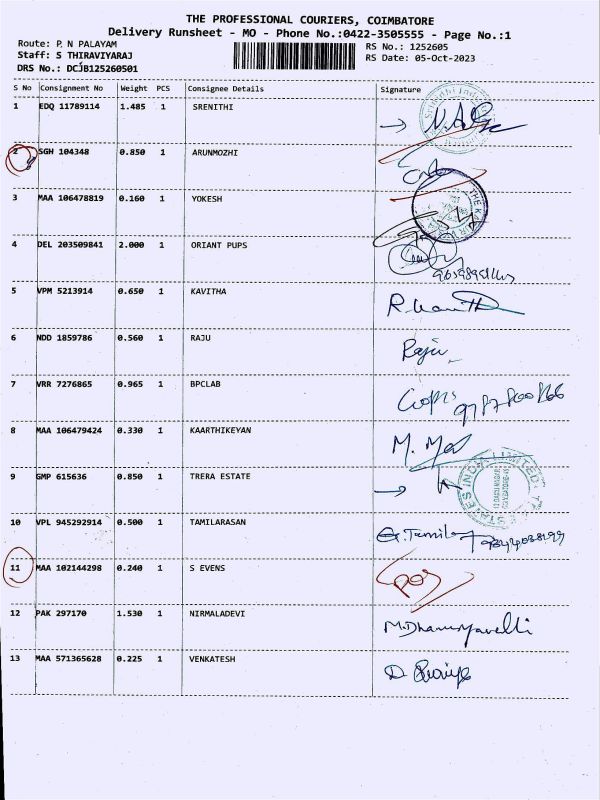 THE PROFESSIONAL COURIERS, COIMBATORE
Delivery Runsheet - MO - Phone No.:0422-3505555 - Page No.:1
Route: P, N PALAYAM
RS No.: 1252605
Staff: S THIRAVIYARAJ
RS Date: 05-Oct-2023
DRS No.: DCJB125260501
S No Consignment No Weight PCS Consignee Details Signature
1 EDQ 11789114 1.485 1 SRENITHI
2 SGH 104348 0.850 1 ARUNMOZHI
3 MAA 106478819 0.160 1 YOKESH
4 DEL 203509841 2.000 1 ORIANT PUPS
5 VPM 5213914 0.650 1 KAVITHA
6 NDD 1859786 0.560 1 RAJU Raju
7 VRR 7276865 0.965 1 BPCLAB
8 MAA 106479424 0.330 1 KAARTHIKEYAN
9 GMP 615636 0.850 1 TRERA ESTATE
10 VPL 945292914 0.500 1 TAMILARASAN
11 MAA 102144298 0.240 1 S EVENS
12 PAK 297170 1.530 1 NIRMALADEVI
13 MAA 571365628 0.225 1 VENKATESH